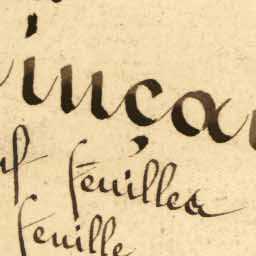 inça
feuillea
feuille